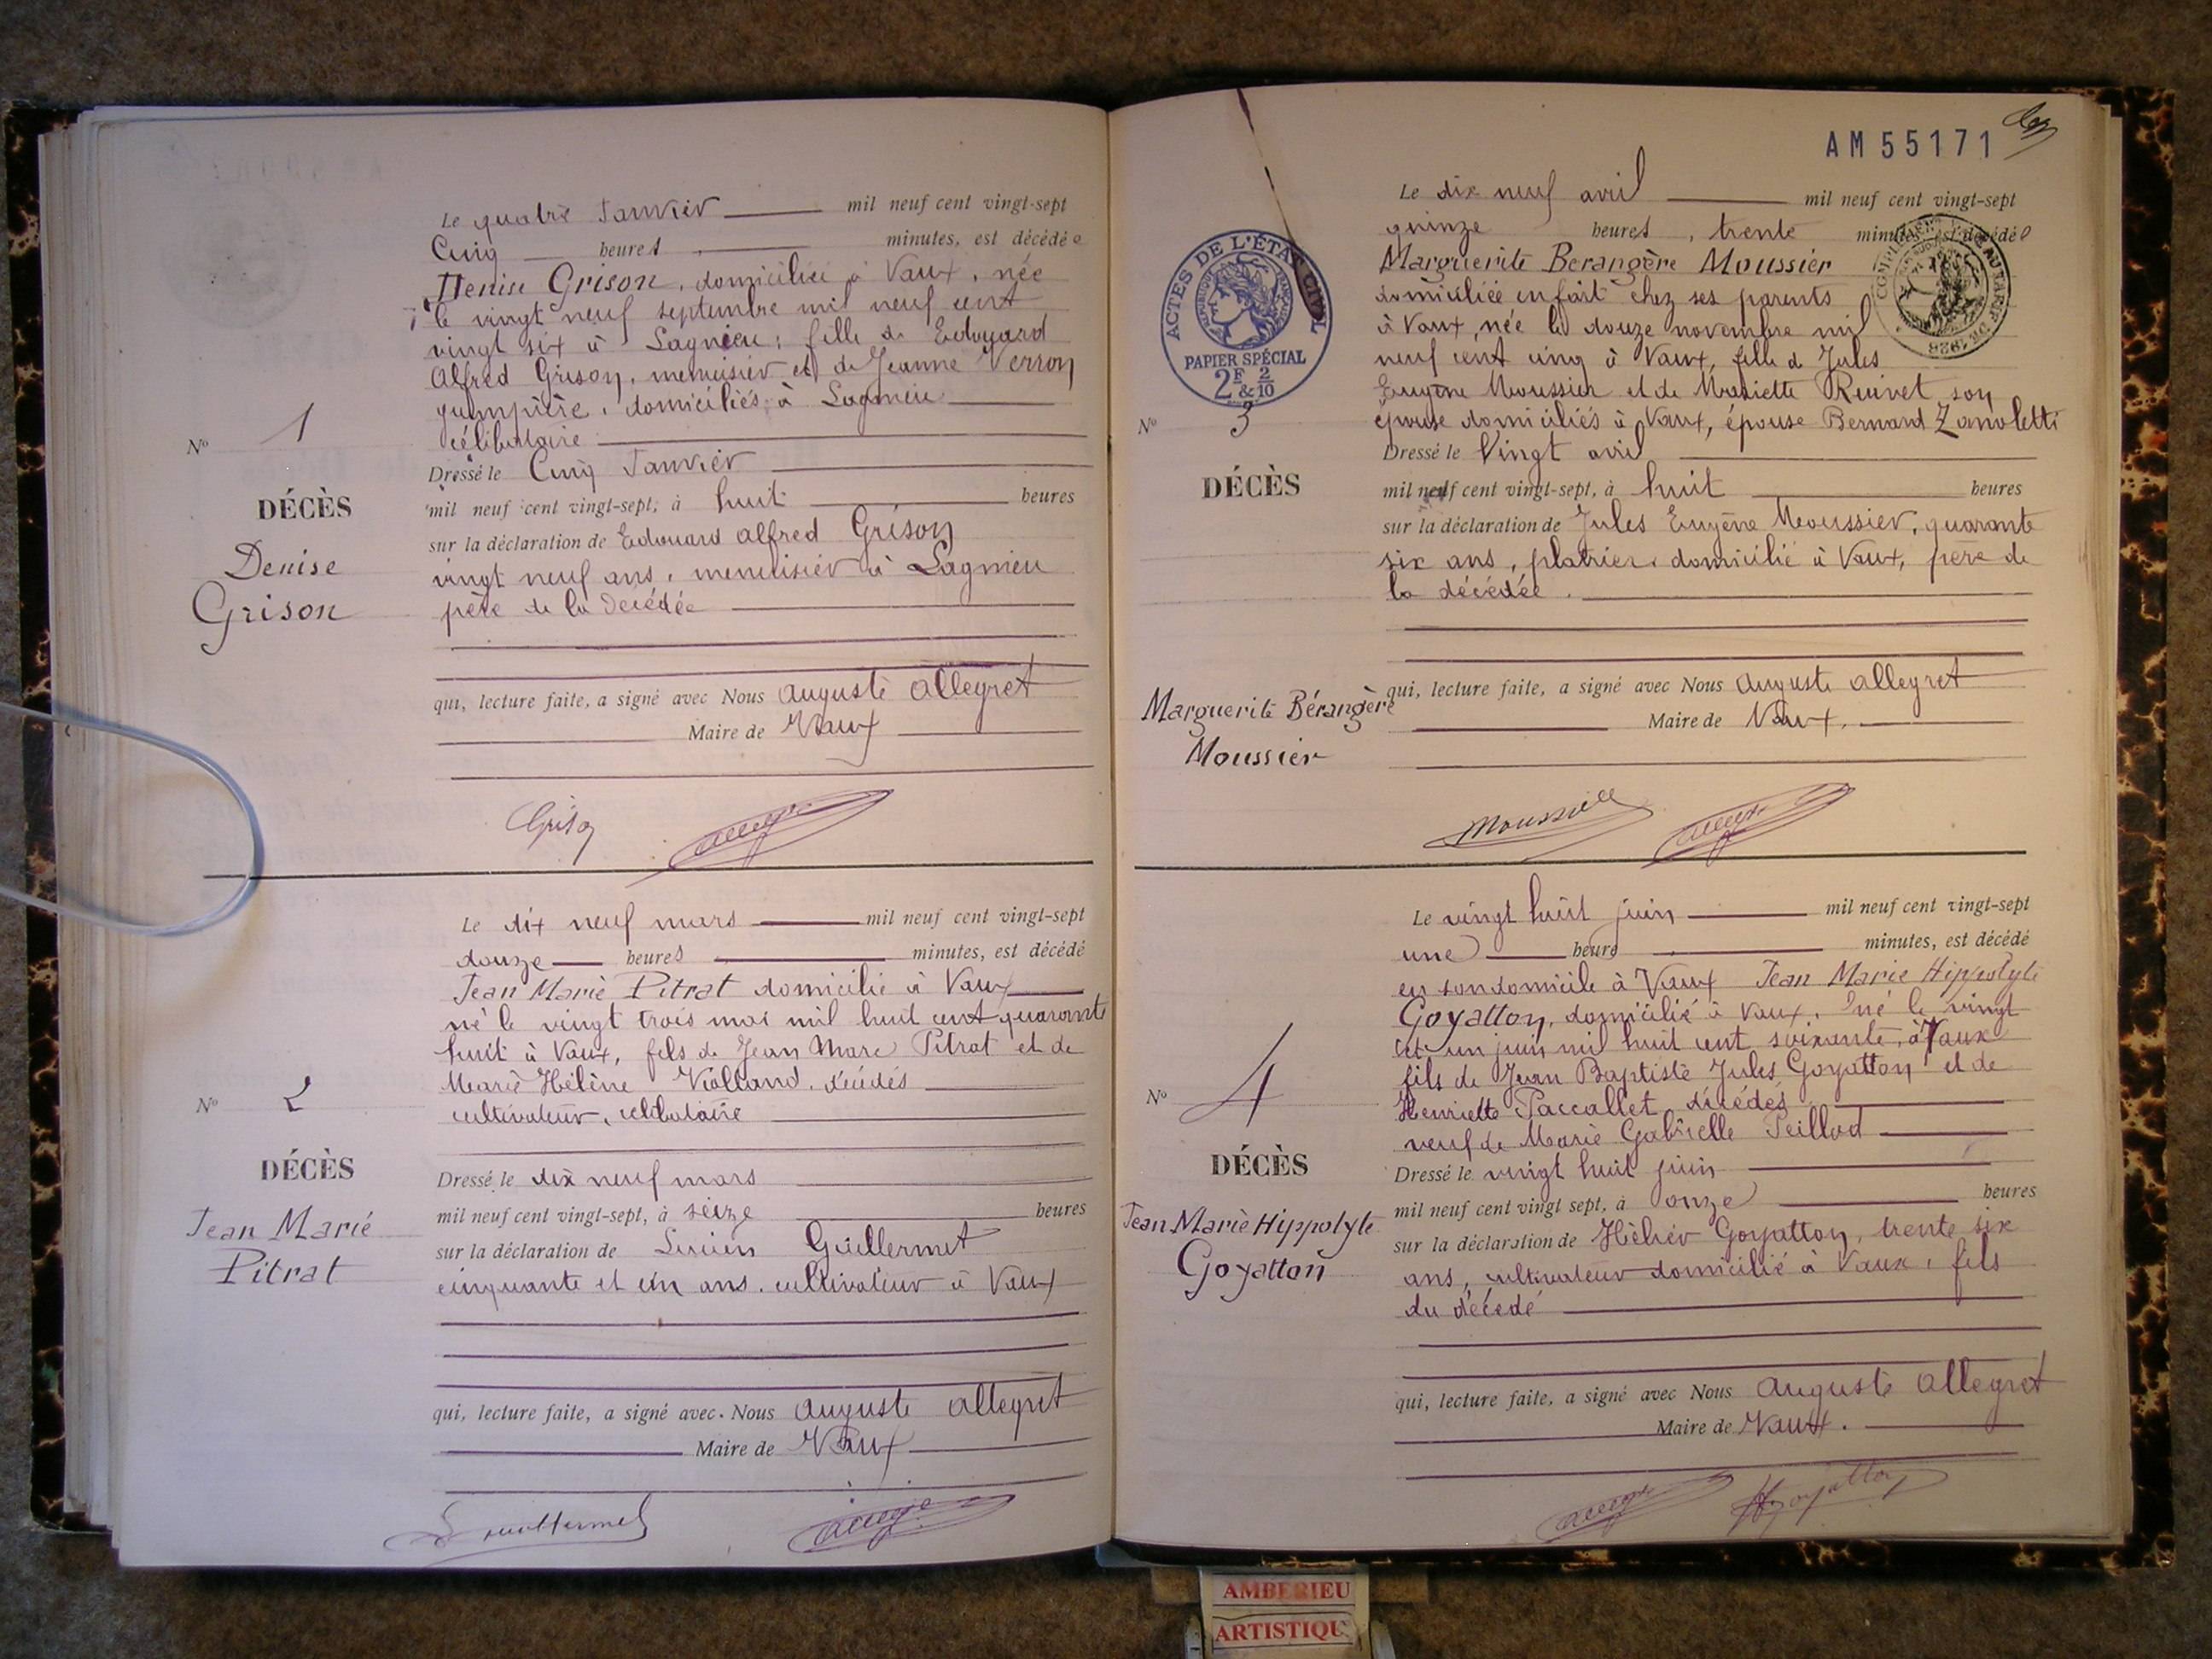 Le quatre Janvier mil neuf cent vingt-sept
Cinq heures minutes, est décédée
Denise Grison, domiciliée à Vaux, née
le vingt neuf septembre mil neuf cent
vingt six à Lagnieu, fille de Edouard
Alfred Grison, menuisier et de Jeanne Verron
guimpière, domiciliés à Lagnieu
célibataire
Nº 1
Dressé le Cinq Janvier
mil neuf cent vingt-sept, à huit heures
DÉCÈS
sur la déclaration de Edouard Alfred Grison
Denise
Grison
vingt neuf ans, menuisier à Lagnieu
père de la décédée
qui, lecture faite, a signé avec Nous Auguste Allegret
Maire de Vaux
Grison
Le dix neuf mars mil neuf cent vingt-sept
douze heures minutes, est décédé
Jean Marie Pitrat domicilié à Vaux
né le vingt trois mai mil huit cent quarante
huit à Vaux, fils de Jean Marc Pitrat et de
Marie Hélène Violland, décédés
cultivateur, célibataire
Nº 2
DÉCÈS
Jean Marie
Pitrat
Dressé le dix neuf mars
mil neuf cent vingt-sept, à seize heures
sur la déclaration de Lucien Guillermet
cinquante et un ans, cultivateur à Vaux
qui, lecture faite, a signé avec Nous Auguste Allegret
Maire de Vaux
Guillermet
AM55171
ACTES DE L'ÉTAT CIVIL
PAPIER SPÉCIAL
2F & 2/10
Le dix neuf avril mil neuf cent vingt-sept
quinze heures, trente minutes est décédée
Marguerite Berangère Moussier
domiciliée en fait chez ses parents
à Vaux, née le douze novembre mil
neuf cent cinq à Vaux, fille de Jules
Eugène Moussier et de Mariette Ruivet son
épouse domiciliés à Vaux, épouse Bernard Zanoletti
Nº 3
DÉCÈS
Marguerite Bérangère
Moussier
Dressé le Vingt avril
mil neuf cent vingt-sept, à huit heures
sur la déclaration de Jules Eugène Moussier, quarante
six ans, platrier, domicilié à Vaux, père de
la décédée.
qui, lecture faite, a signé avec Nous Auguste Allegret
Maire de Vaux.
Moussier
Le vingt huit juin mil neuf cent vingt-sept
une heure minutes, est décédé
en son domicile à Vaux Jean Marie Hippolyte
Goyatton, domicilié à Vaux, né le vingt
et un juin mil huit cent soixante, à Vaux
fils de Jean Baptiste Jules Goyatton et de
Henriette Paccallet décédés
veuf de Marie Gabrielle Peillod
Nº 4
DÉCÈS
Jean Marie Hippolyte
Goyatton
Dressé le vingt huit juin
mil neuf cent vingt sept, à onze heures
sur la déclaration de Goyatton, trente six
ans, cultivateur domicilié à Vaux, fils
du décédé
qui, lecture faite, a signé avec Nous Auguste Allegret
Maire de Vaux.
Goyatton
AMBERIEU
ARTISTIQU